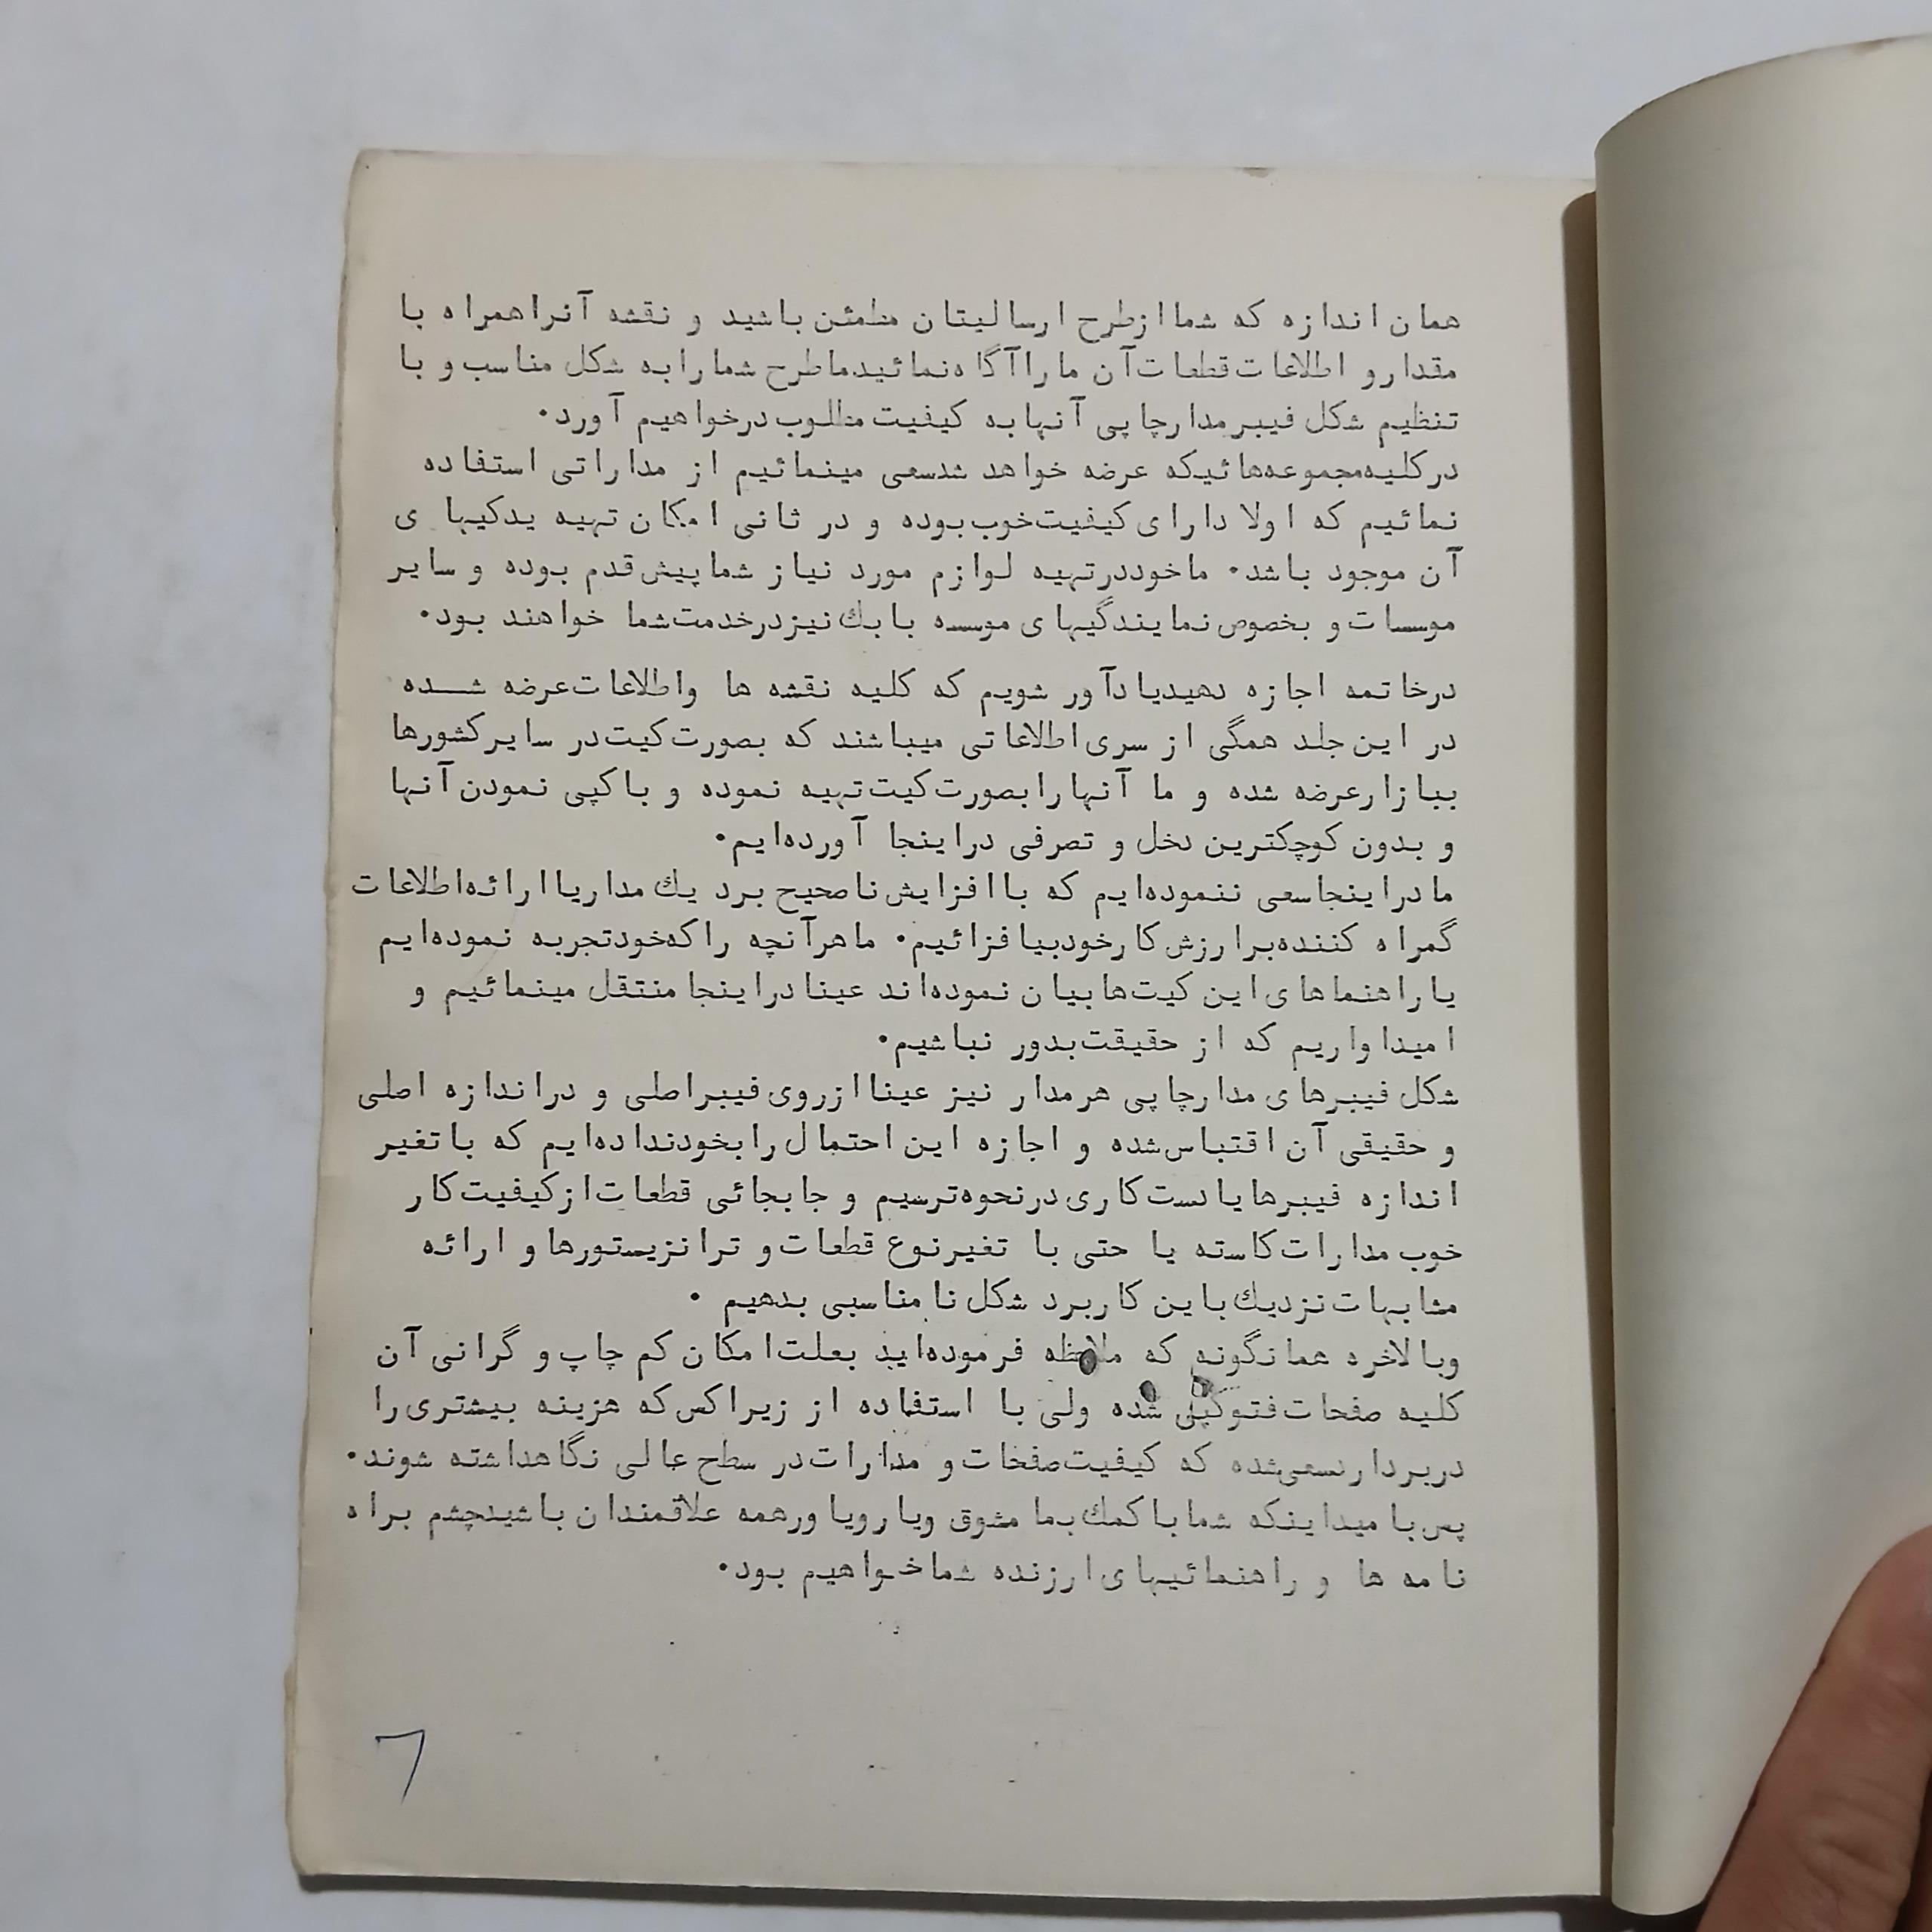 همان اندازه که شما از طرح ارسالیتان مطمئن باشید و نقشه آنرا همراه با
مقدار و اطلاعات قطعات آن ما را آگاه نمائید ما طرح شما را به شکل مناسب و با
تنظیم شکل فیبر مدار چاپی آنها به کیفیت مطلوب در خواهیم آورد.
در کلیه مجموعه‌هائیکه عرضه خواهد شد سعی مینمائیم از مداراتی استفاده
نمائیم که اولا دارای کیفیت خوب بوده و در ثانی امکان تهیه یدکیهای
آن موجود باشد. ما خود در تهیه لوازم مورد نیاز شما پیش قدم بوده و سایر
موسسات و بخصوص نمایندگیهای موسسه بابك نیز در خدمت شما خواهند بود.
در خاتمه اجازه دهید یادآور شویم که کلیه نقشه ها و اطلاعات عرضه شـــده
در این جلد همگی از سری اطلاعاتی میباشند که بصورت کیت در سایر کشورها
ببازار عرضه شده و ما آنها را بصورت کیت تهیه نموده و با کپی نمودن آنها
و بدون کوچکترین دخل و تصرفی در اینجا آورده‌ایم.
ما در اینجا سعی ننموده‌ایم که با افزایش ناصحیح برد یك مدار یا ارائه اطلاعات
گمراه کننده بر ارزش کار خود بیافزائیم. ما هر آنچه را که خود تجربه نموده‌ایم
یا راهنماهای این کیت‌ها بیان نموده‌اند عینا در اینجا منتقل مینمائیم و
امیداواریم که از حقیقت بدور نباشیم.
شکل فیبرهای مدار چاپی هر مدار نیز عینا از روی فیبر اصلی و در اندازه اصلی
و حقیقی آن اقتباس شده و اجازه این احتمال را بخود نداده‌ایم که با تغیر
اندازه فیبرها یا دست کاری در نحوه ترسیم و جابجائی قطعات از کیفیت کار
خوب مدارات کاسته یا حتی با تغیر نوع قطعات و ترانزیستورها و ارائه
مشابهات نزدیك باین کاربرد شکل نامناسبی بدهیم .
وبالاخره همانگونه که ملاحظه فرموده‌اید بعلت امکان کم چاپ و گرانی آن
کلیه صفحات فتوکپی شده ولی با استفاده از زیراکس که هزینه بیشتری را
دربردارد سعی شده که کیفیت صفحات و مدارات در سطح عالی نگاهداشته شوند.
پس با میداینکه شما با کمك بما مشوق و یار و یاور همه علاقمندان باشید چشم براه
نامه ها و راهنمائیهای ارزنده شما خواهیم بود.
٦